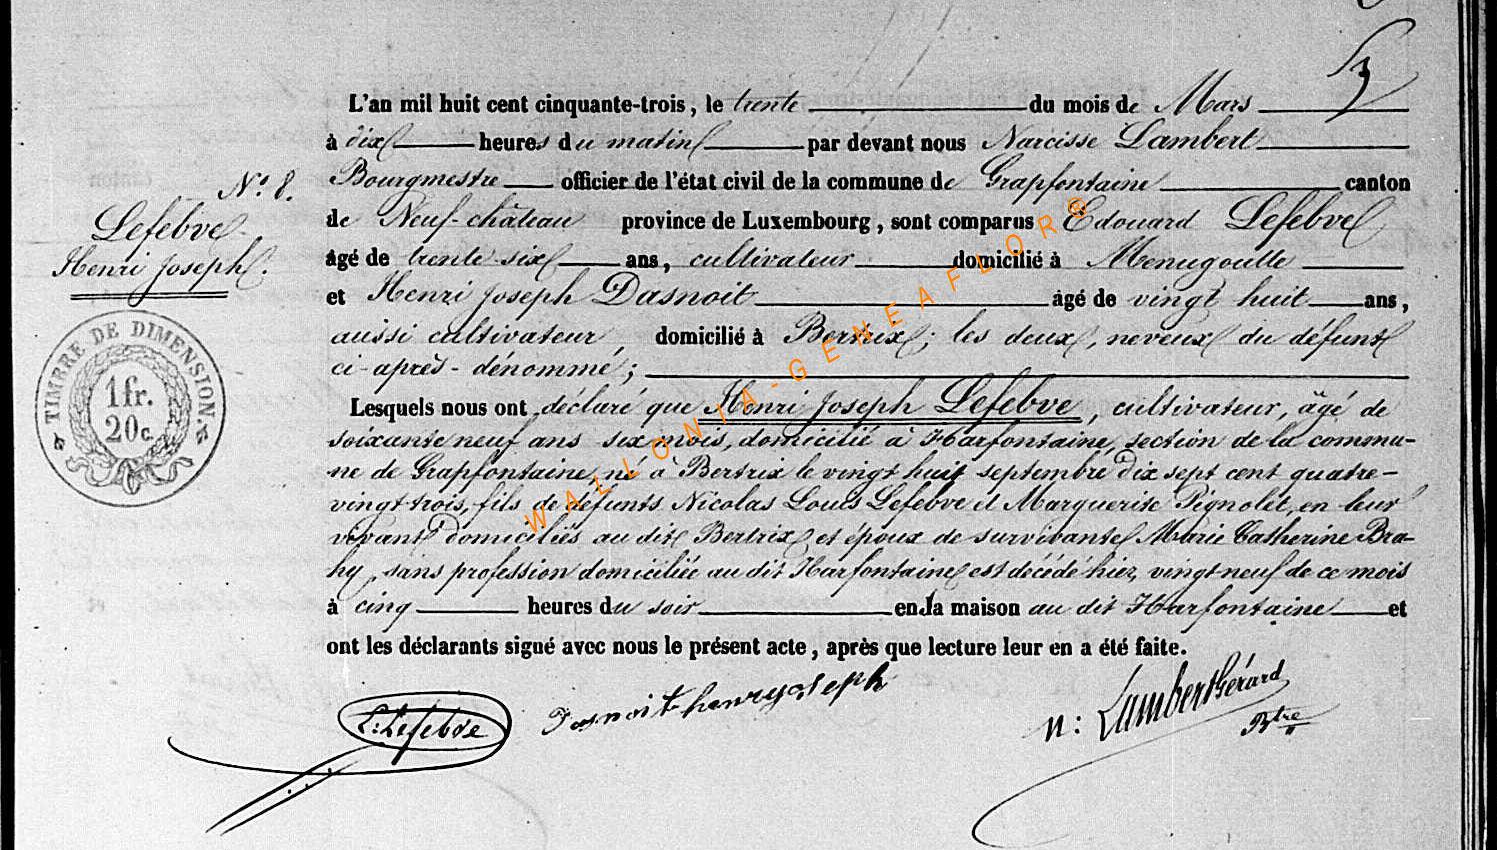 3
L'an mil huit cent cinquante-trois, le trente du mois de Mars
à dix heures du matin par devant nous Narcisse Lambert
Bourgmestre officier de l'état civil de la commune de Grapfontaine canton
de Neuf-château province de Luxembourg, sont comparus Edouard Lefebve
âgé de trente-six ans, cultivateur domicilié à Menugoutte
et Henri Joseph Dasnoit âgé de vingt huit ans,
aussi cultivateur, domicilié à Bertrix; les deux, neveux du défunt
ci-après-dénommé;
Lesquels nous ont déclaré que Henri Joseph Lefebve, cultivateur, âgé de
soixante neuf ans six mois, domicilié à Harfontaine, section de la commu-
ne de Grapfontaine, né à Bertrix le vingt huit septembre dix sept cent quatre-
vingt-trois, fils de défunts Nicolas Louis Lefebve et Marguerite Pignolet, en leur
vivant domiciliés au dit Bertrix et époux de survivante Marie Catherine Bra-
hy, sans profession domiciliée au dit Harfontaine est décédé hier, vingt-neuf de ce mois
à cinq heures du soir en la maison au dit Harfontaine et
ont les déclarants signé avec nous le présent acte, après que lecture leur en a été faite.
N° 8.
Lefebve
Henri Joseph.
TIMBRE DE DIMENSION
1 fr.
20 c.
E: Lefebve
Dasnoit henry joseph
N: Lambert Gérard
Btre
WALLONIA-GENEAFLOR®